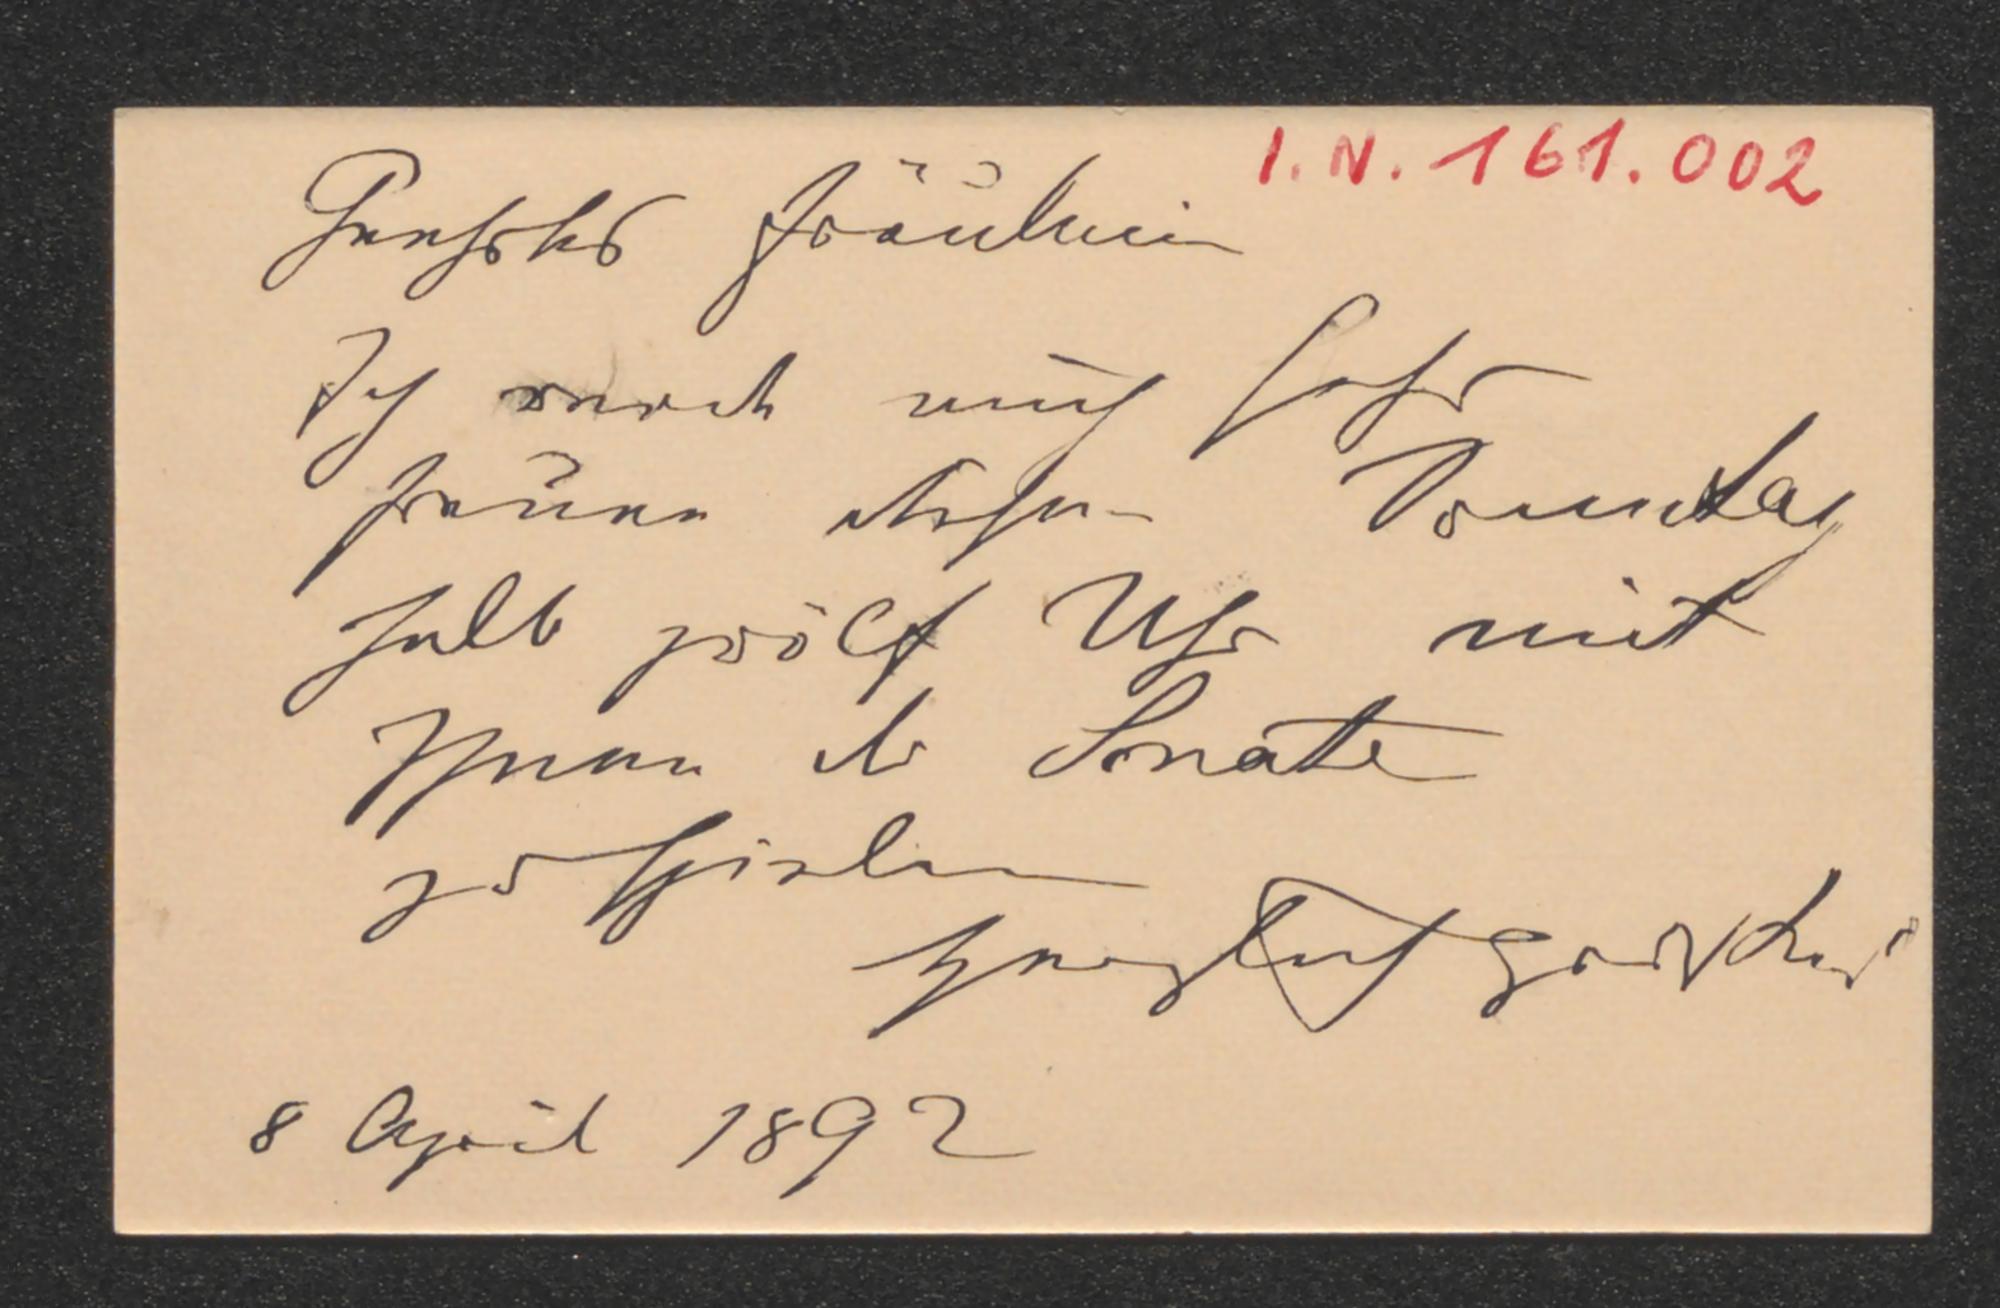 I.N. 161.002
Geehrtes Fräulein
Ich werde mich sehr
freuen diesen Sonntag
halb zwölf Uhr mit
Ihnen die Sonate
zu spielen
8 April 1892